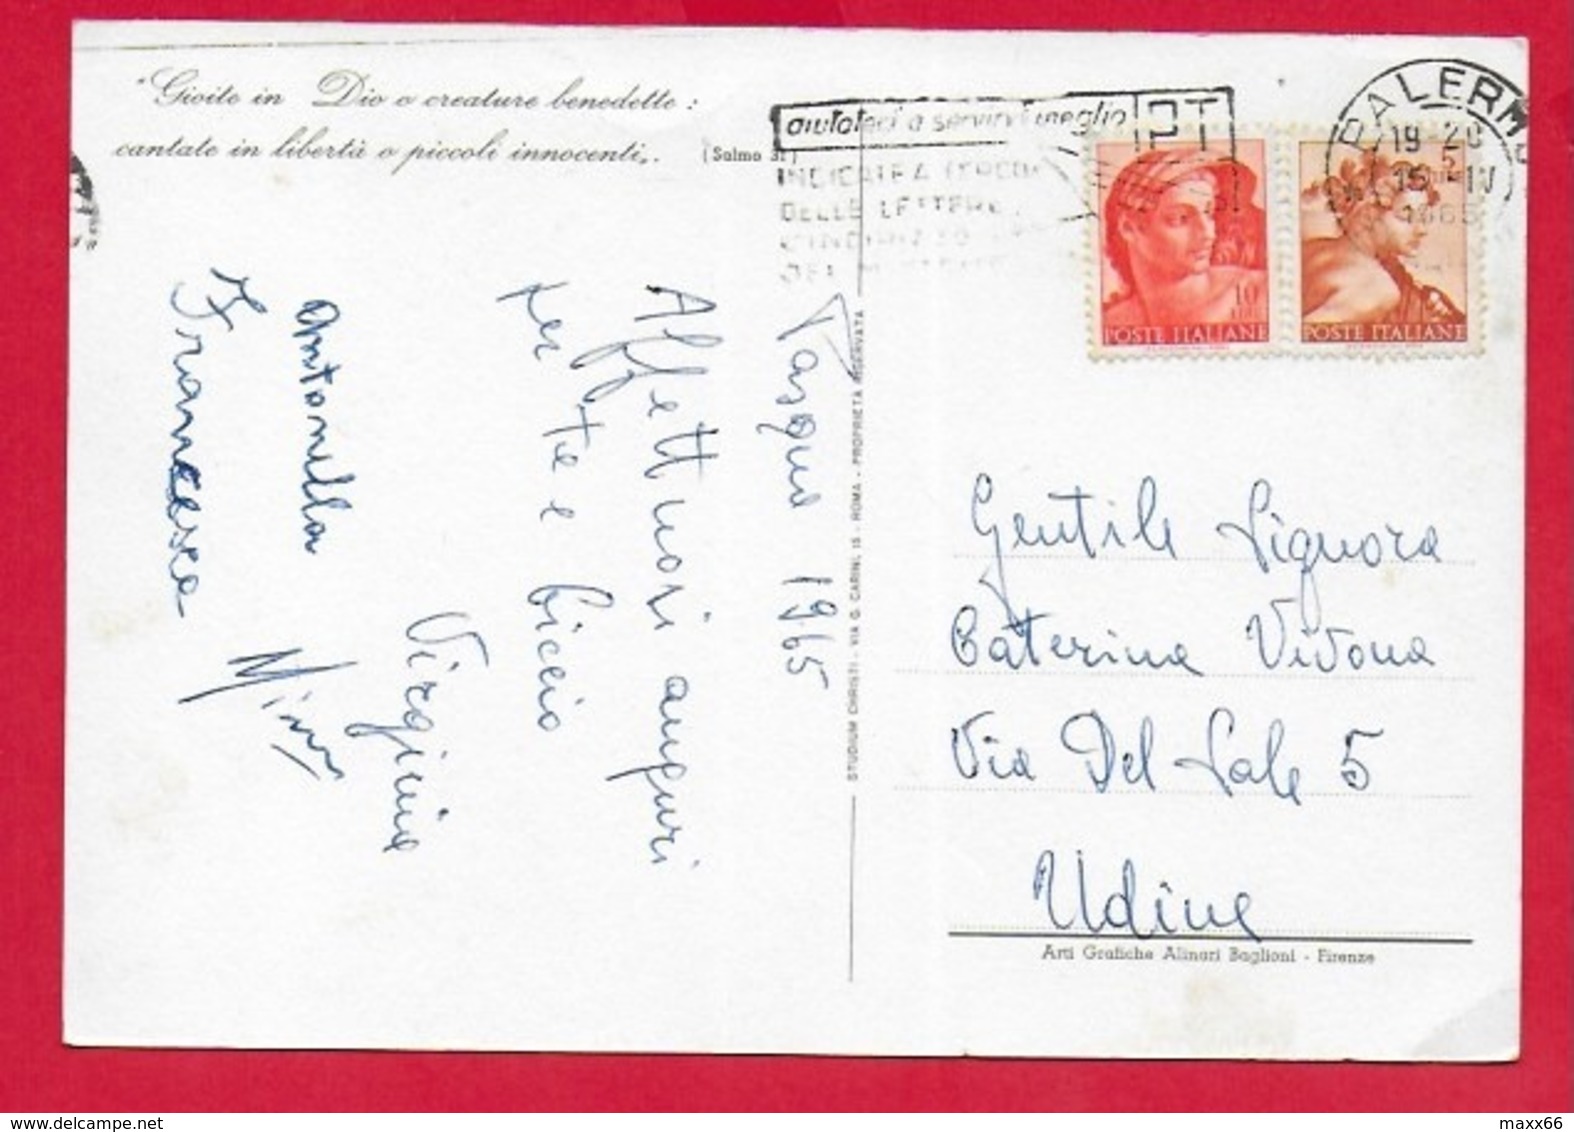 "Gioite in Dio o creature benedette:
cantate in libertà o piccoli innocenti,.
(Salmo 31)
aiutateci a servirvi meglio PT
INDICATE
DELLE LETTERE
PALERMO
19-20
15-IV
1965
10
POSTE ITALIANE
5
POSTE ITALIANE
Pasqua 1965
Affettuosi auguri
per te e Ciccio
Virginia
Antonella
Francesca
STUDIUM CHRISTI - VIA G. CARINI, 15 - ROMA - PROPRIETÀ RISERVATA
Gentile Signora
Caterina Vivona
Via Del Sale 5
Udine
Arti Grafiche Alinari Baglioni - Firenze
delcampe.net
maxx66